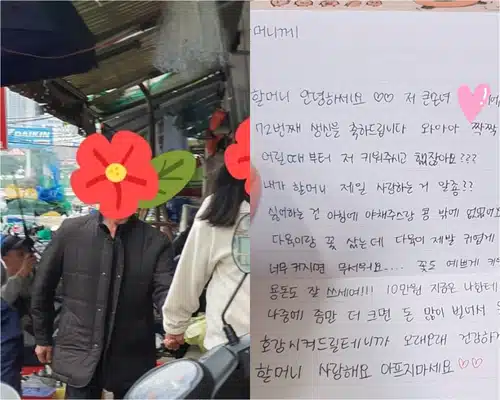 DAIKIN
머니께!
할머니 안녕하세요 ♡♡ 저 큰손녀
72번째 생신을 축하드립니다 와아아 짝짝
어릴때부터 저 키워주시고 했잖아요???
내가 할머니 제일 사랑하는 거 알죵??
싫어하는 건 아침에 야채주스랑 콩 밖에 없었어요
다육이랑 꽃 샀는데 다육이 제발 귀엽게
너무 커지면 무서워요.... 꽃도 예쁘게 키
용돈도 잘 쓰세여!!! 10만원 지금은 나한테
나중에 좀만 더 크면 돈 많이 벌어서
호강시켜드릴테니까 오래오래 건강하게
할머니 사랑해요 아프지마세요 ♡♡